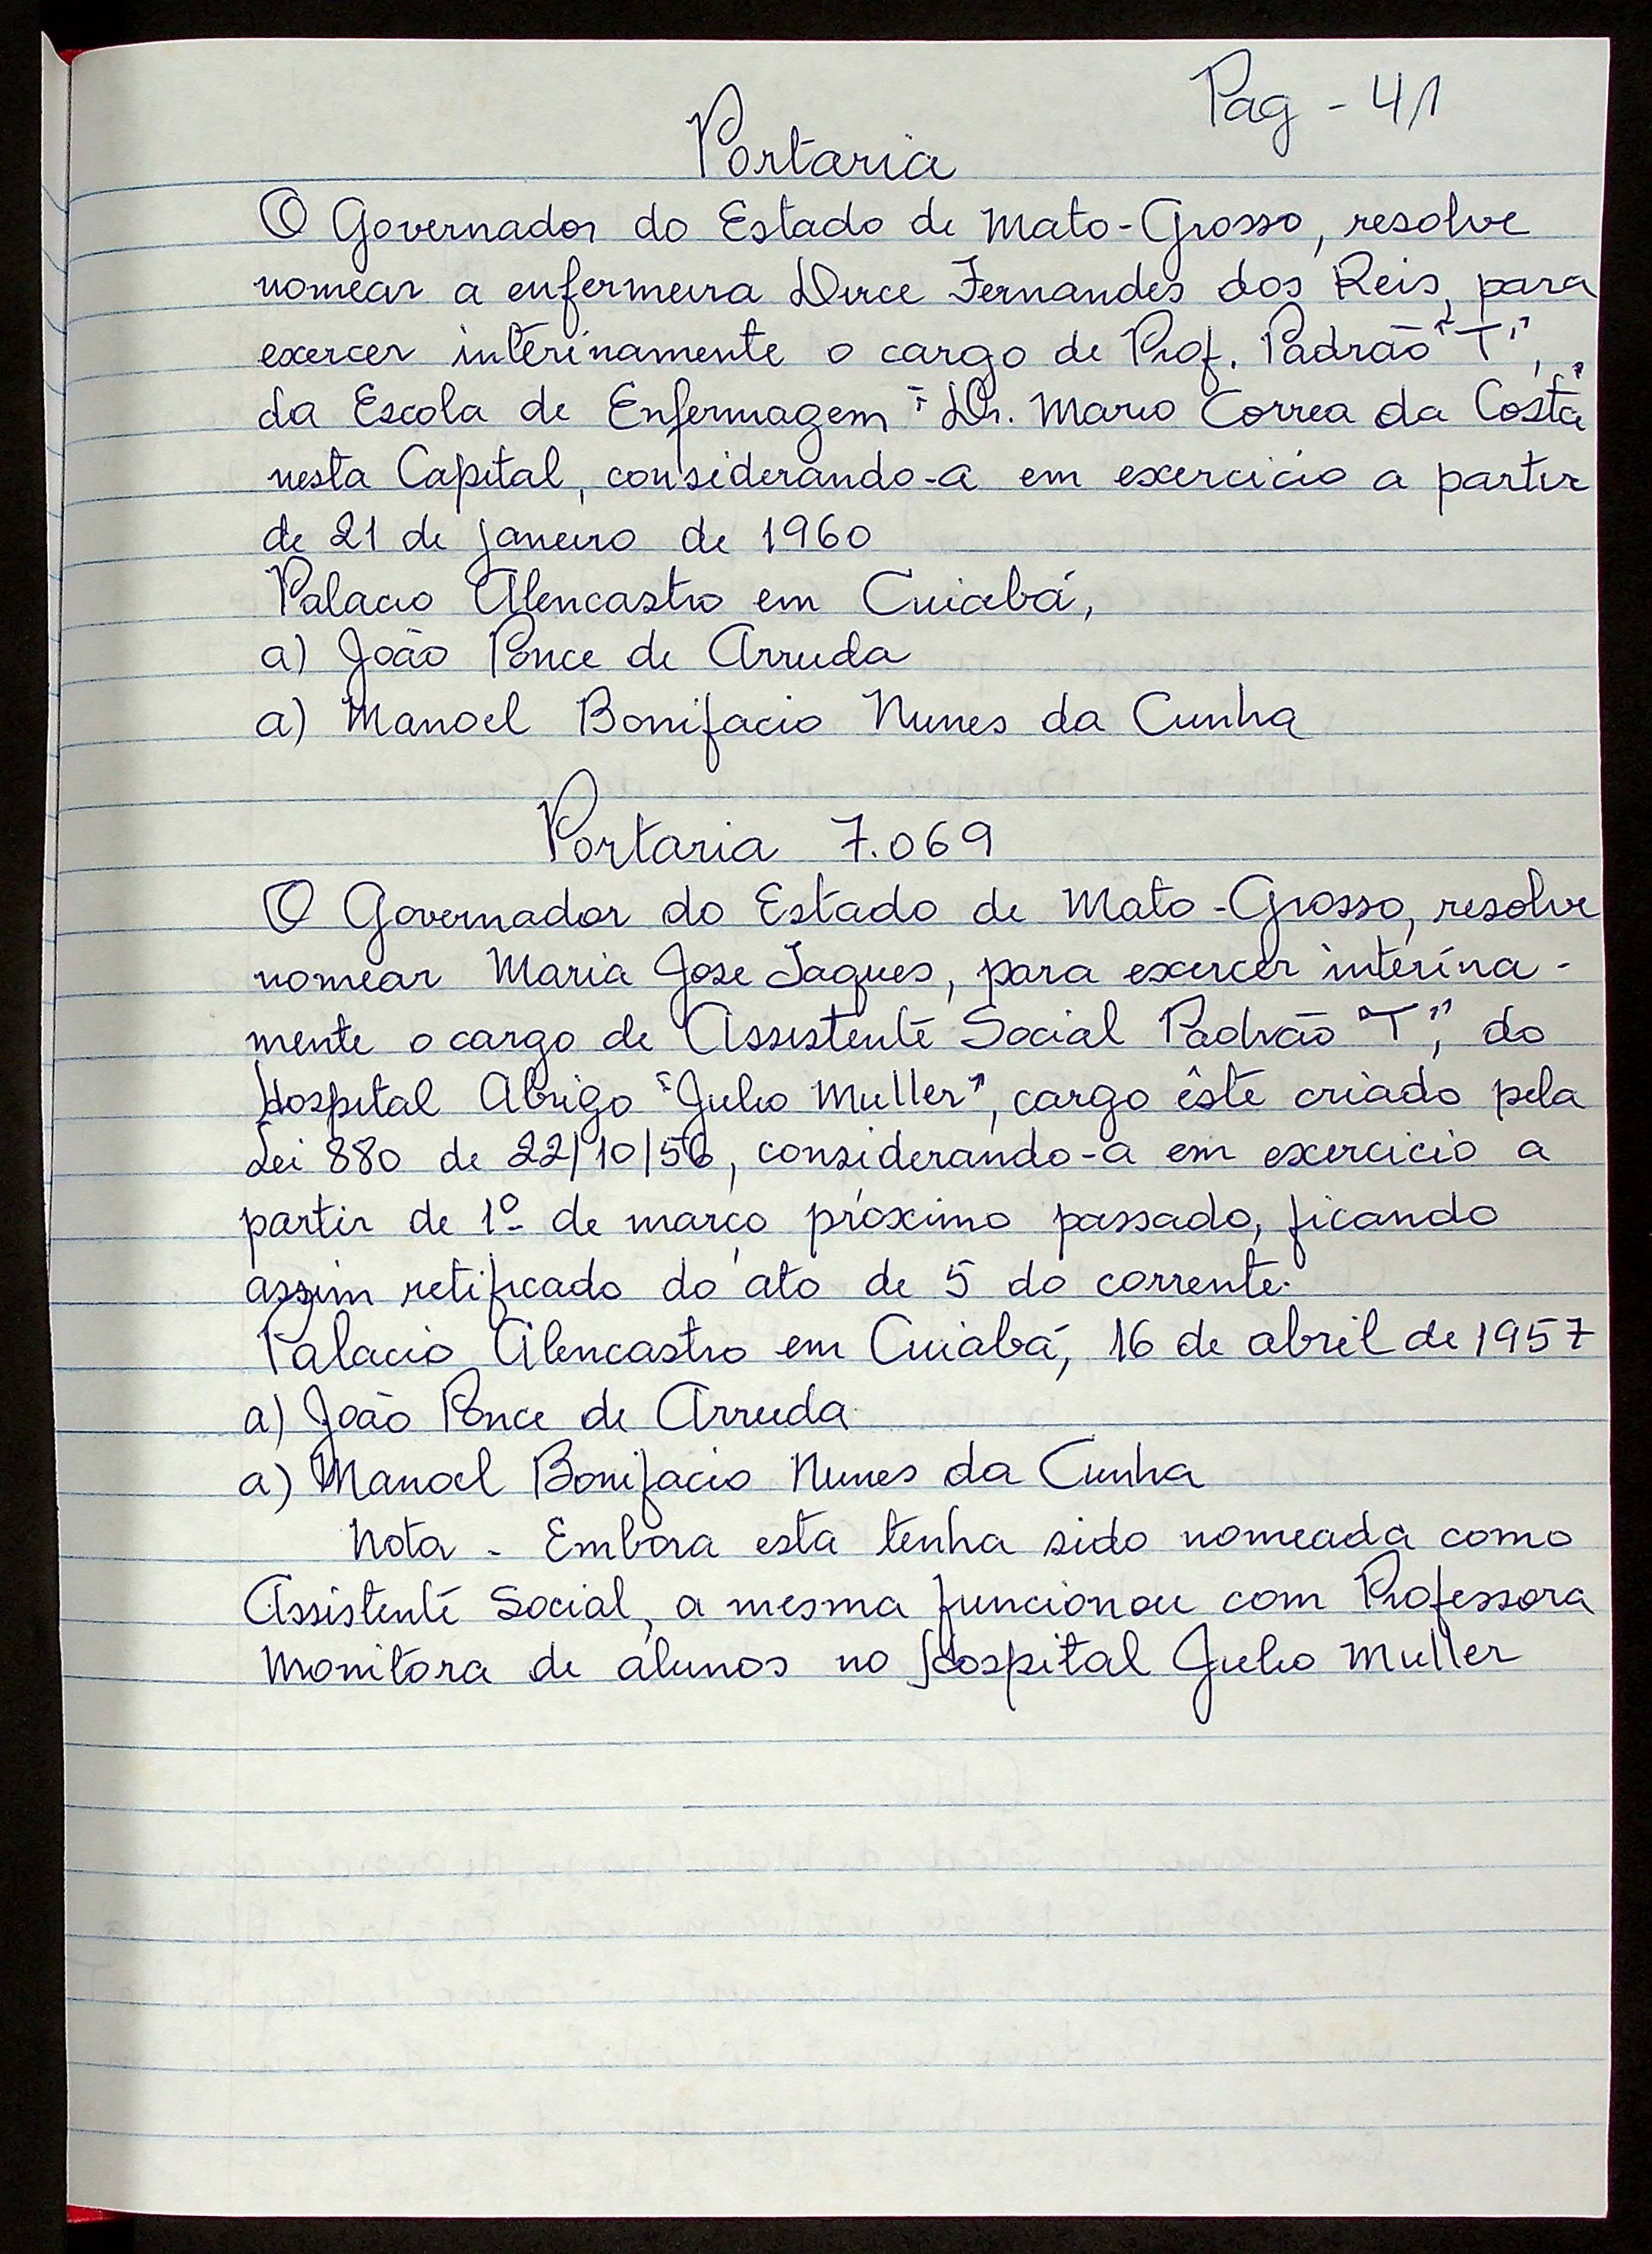 Pag - 41
Portaria
O Governador do Estado de Mato-Grosso, resolve
nomear a enfermeira Dirce Fernandes dos Reis, para
exercer interinamente o cargo de Prof. Padrão "T",
da Escola de Enfermagem "Dr. Mario Correa da Costa"
nesta Capital, considerando-a em exercicio a partir
de 21 de janeiro de 1960
Palacio Alencastro em Cuiabá,
a) João Ponce de Arruda
a) Manoel Bonifacio Nunes da Cunha
Portaria 7.069
O Governador do Estado de Mato-Grosso, resolve
nomear Maria Jose Jaques, para exercer interina-
mente o cargo de Assistente Social Padrão "T", do
Hospital Abrigo "Julio Muller", cargo êste criado pela
Lei 880 de 22/10/56, considerando-a em exercicio a
partir de 1º de março próximo passado, ficando
assim retificado do ato de 5 do corrente.
Palacio Alencastro em Cuiabá, 16 de abril de 1957
a) João Ponce de Arruda
a) Manoel Bonifacio Nunes da Cunha
Nota - Embora esta tenha sido nomeada como
Assistente Social, a mesma funcionou com Professora
Monitora de alunos no Hospital Julio Muller